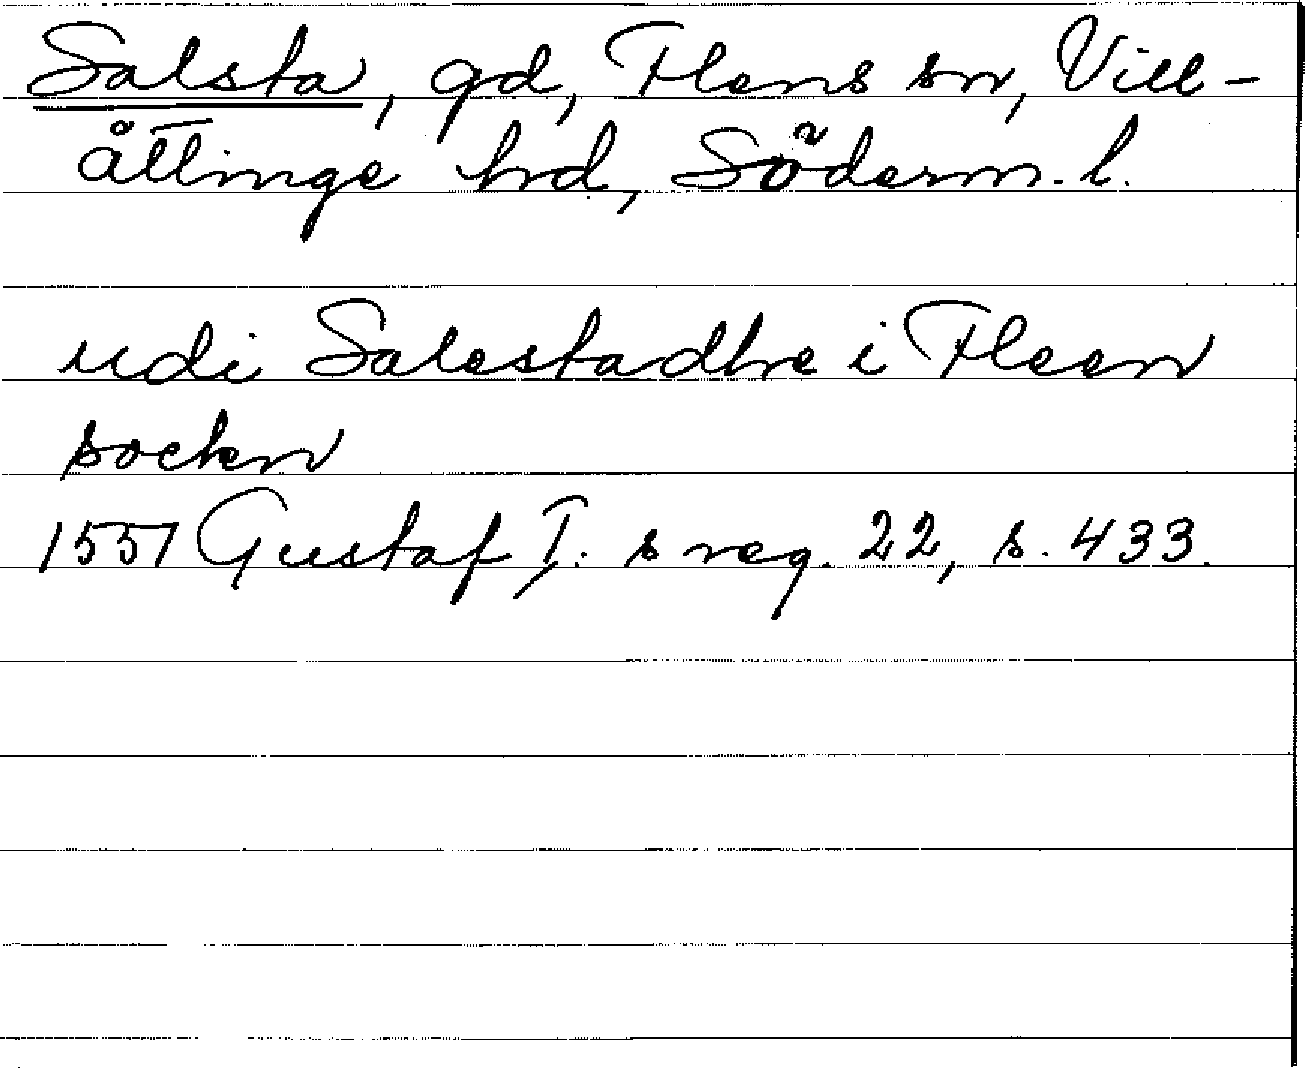 Salsta, gd, Flens sn, Vill-
åttinge hd, Söderm. l.
udi Salestadhe i Fleen
sockn
1551 Gustaf I: s reg. 22, s. 433.